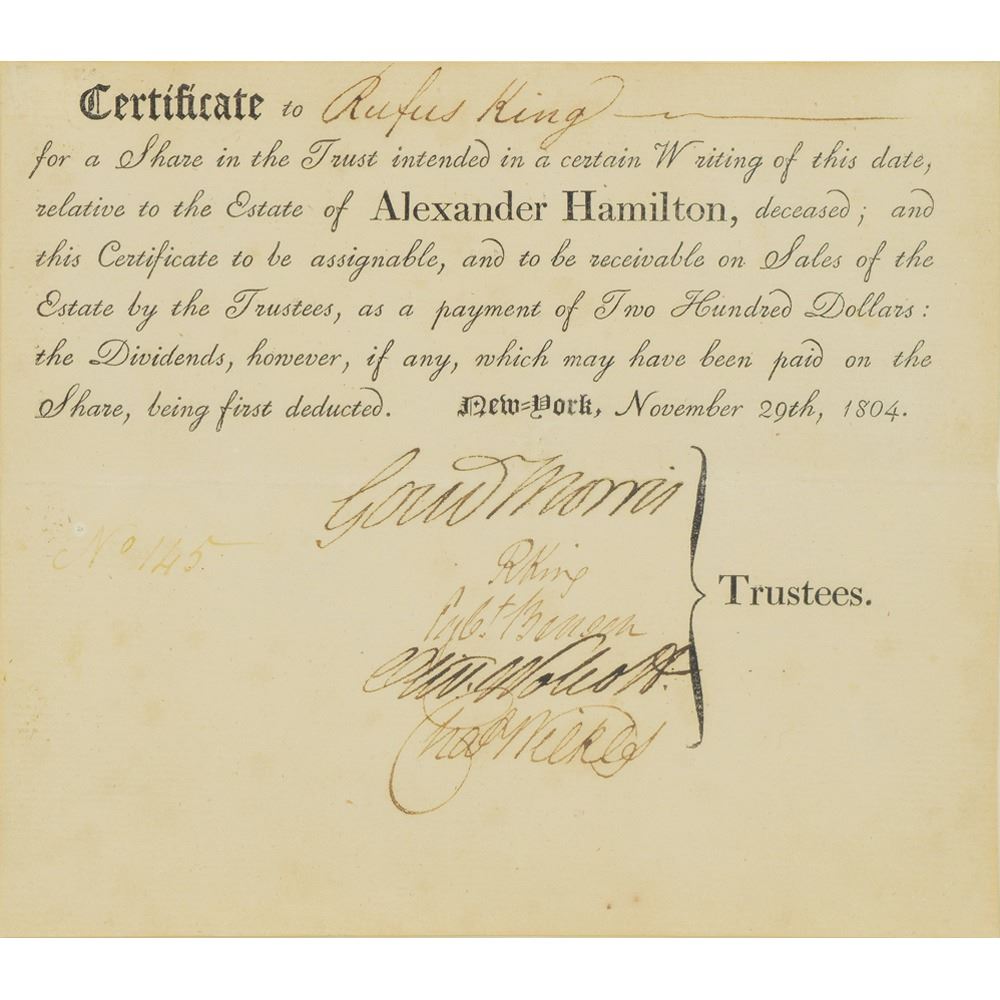 Certificate to Rufus King
for a Share in the Trust intended in a certain Writing of this date,
relative to the Estate of Alexander Hamilton, deceased; and
this Certificate to be assignable, and to be receivable on Sales of the
Estate by the Trustees, as a payment of Two Hundred Dollars:
the Dividends, however, if any, which may have been paid on the
Share, being first deducted. New-York, November 29th, 1804.
Gouv Morris
R King
Egbt Benson
Oliv. Wolcott.
Chas Wilkes
Trustees.
No 145